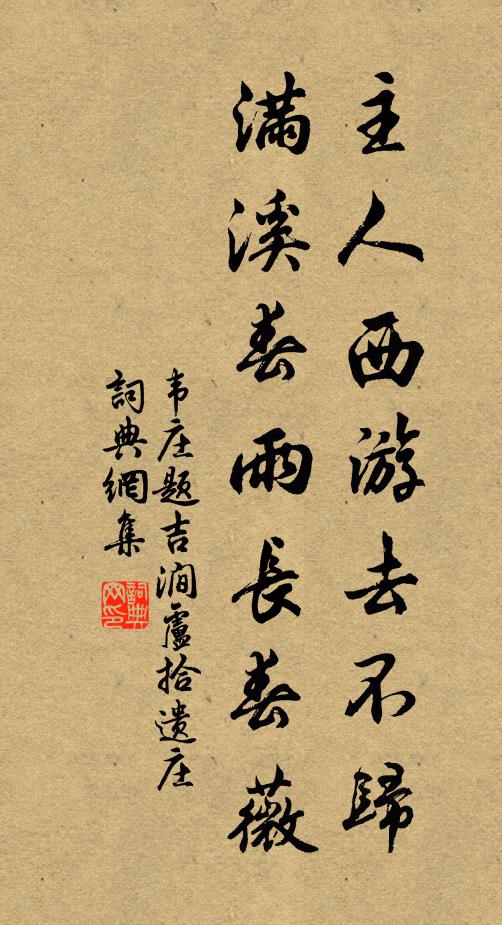 主人西游去不歸
滿溪春雨長春薇
韦庄题吉澗盧拾遺庄
詞典網集
詞典网印